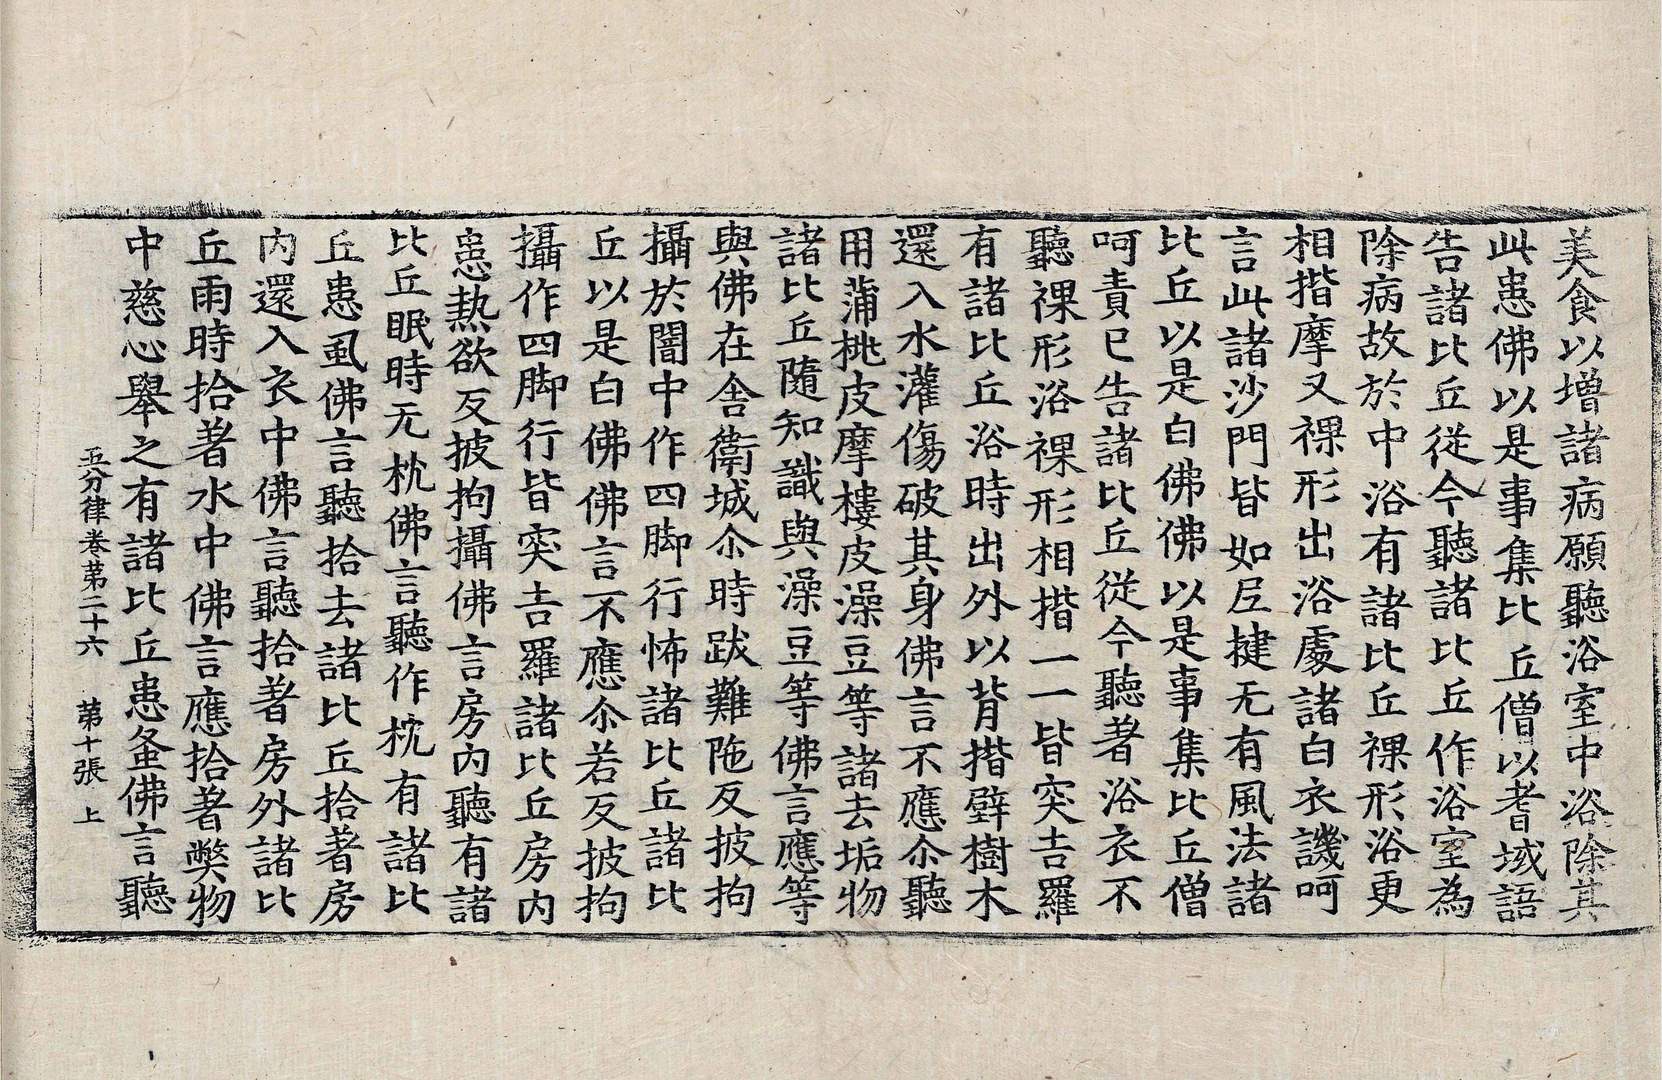 美食以增諸病願聽浴室中浴除其
此患佛以是事集比丘僧以耆域語
告諸比丘從今聽諸比丘作浴室為
除病故於中浴有諸比丘裸形浴更
相揩摩又裸形出浴處諸白衣譏呵
言此諸沙門皆如尼揵无有風法諸
比丘以是白佛佛以是事集比丘僧
呵責已告諸比丘從今聽著浴衣不
聽裸形浴裸形相揩一一皆突吉羅
有諸比丘浴時出外以背揩壁樹木
還入水灌傷破其身佛言不應尒聽
用蒲桃皮摩樓皮澡豆等諸去垢物
諸比丘隨知識與澡豆等佛言應等
與佛在舍衛城尒時跋難陁反披拘
攝於闇中作四脚行怖諸比丘諸比
丘以是白佛佛言不應尒若反披拘
攝作四脚行皆突吉羅諸比丘房內
患熱欲反披拘攝佛言房內聽有諸
比丘眠時无枕佛言聽作枕有諸比
丘患虱佛言聽拾去諸比丘拾著房
內還入衣中佛言聽拾著房外諸比
丘雨時拾著水中佛言應拾著弊物
中慈心舉之有諸比丘患蚤佛言聽
五分律卷第二十六 第十張 上